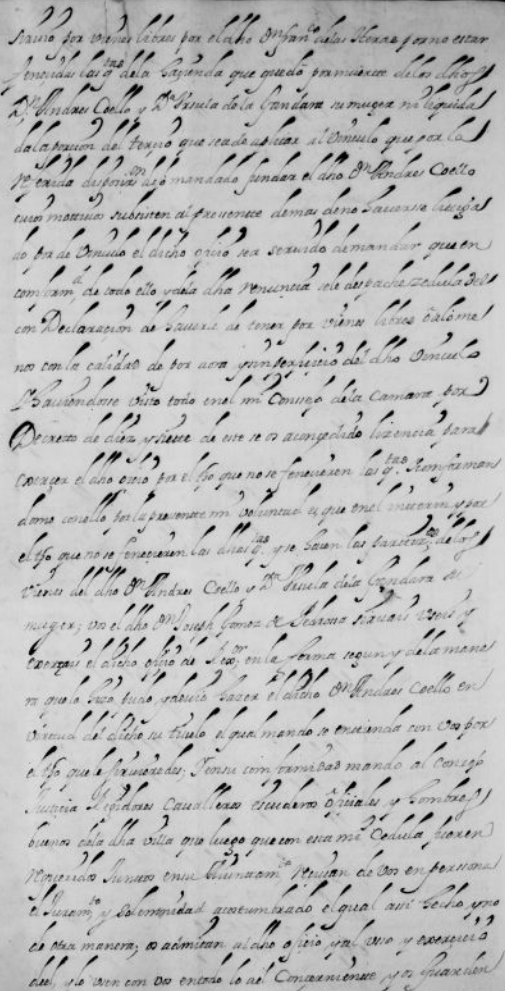 havido por vienes libres por el dho Dn Franco de las Heras por no estar
fenecidas las qtas de la hazienda que quedo por muerte de los dhos
Dn Andres Coello y Da Ursula de la Gandara su muger ni liquida
da la porcion del terzio que se ade aplicar al Vinculo que por la
referida disposon dejo mandado fundar el dho Dn Andres Coello
cuios mottivos subsisten al presente demas de no haverse
do por de Vinculo el dicho oficio sea servido de mandar que en
comformd de todo ello y de la dha renuncia se le despache zedula
con Declarazion de haverle de tener por vienes libres o a lo me
nos con la calidad de por aora y sin perjuicio del dho Vinculo
Y haviendose visto todo en el mi Consejo de la Camara por
Decreto de diez y siete de este se os a conzedido lizencia para
exerçer el dho ofizio por el tpo que no se feneçieren las qtas Y conforman
dome con ello por la presente mi Voluntad es que en el interim y por
el tpo que no se feneçieren las dhas qtas y se haçen las partizes de los
Vienes del dho Dn Andres Coello y Da Ursula de la Gandara su
muger; vos el dho Dn Joseph Gomez de sirvais useis y
exerçais el dicho ofiçio de Rexor en la forma segun y de la mane
ra que lo hizo, pudo y devio hazer el dicho Dn Andres Coello en
virtud del dicho su titulo el qual mando se entienda con vos por
el tpo que le sirvieredes; Y en su comformidad mando al Consejo
Justicia Regidores Cavalleros escuderos ofiçiales y hombres
buenos de la dha villa que luego que con esta mi Cedula fueren
requeridos Juntos en su Aiuntamto reçivan de vos en persona
el Juramto y solemnidad acostumbrado el qual assi hecho y no
de otra manera; os admitan al dho ofiçio y al uso y exerçiçio
del y lo usen con vos en todo lo a el Conçerniente y os guarden